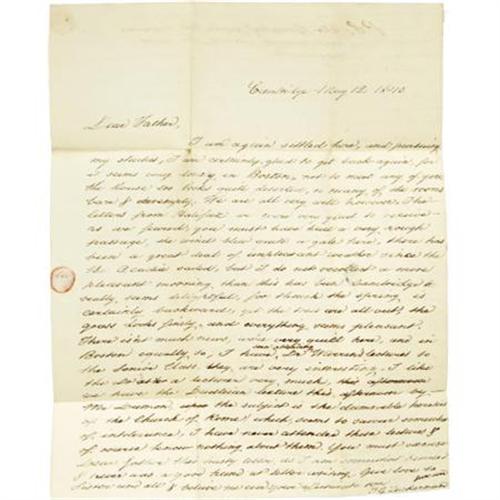 Cambridge May 12. 184
Dear Father,
I am again settled here, and pursuing
my studies, I am certainly glad to get back again, for
it seems very lonely in Boston, not to meet any of you
the house too looks quite deserted, so many of the rooms
bare & empty. We are all very well however. The
letters from Halifax we were very glad to receive
you must have had a very rough
passage, the wind blew quite a gale here, there has
been a great deal of unpleasant weather since the
Acadia sailed, but I do not recollect a more
pleasant morning, than this has been. Cambridge
really seems delightful, for though the spring is
certainly backward, yet the trees are all out, the
grass looks finely, and everything seems pleasant.
There isn't much news, very quiet here, and in
Boston equally so, I have Dr Warren's lectures to
the Senior Class, they are very interesting, I like
the lectures very much, this afternoon
we have the Dudleian lecture this afternoon by
Mr the subject is the damnable heresies
of the Church of Rome, which seems to savour somewhat
of intolerance, I have never attended these lectures &
of course know nothing about them. You must excuse
dear father this letter, as I am
never was a good hand at letter writing, Give love to
and all & believe me ever your affectionate son